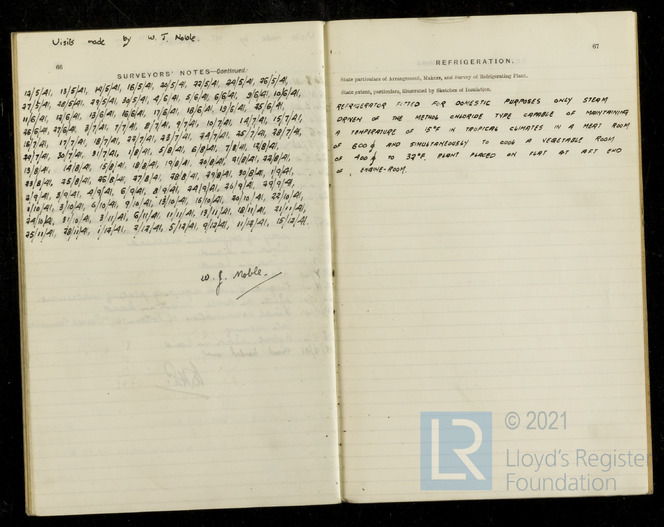 Visits made by W. J. Noble
66
SURVEYORS' NOTES—Continued.
12/5/41, 13/5/41, 14/5/41, 16/5/41, 20/5/41, 22/5/41, 24/5/41, 26/5/41,
27/5/41, 28/5/41, 29/5/41, 30/5/41, 4/6/41, 5/6/41, 6/6/41, 9/6/41, 10/6/41,
11/6/41, 12/6/41, 13/6/41, 16/6/41, 17/6/41, 18/6/41, 19/6/41, 25/6/41,
26/6/41, 27/6/41, 3/7/41, 7/7/41, 8/7/41, 9/7/41, 10/7/41, 14/7/41, 15/7/41,
16/7/41, 17/7/41, 18/7/41, 22/7/41, 23/7/41, 24/7/41, 25/7/41, 28/7/41,
29/7/41, 30/7/41, 31/7/41, 1/8/41, 5/8/41, 6/8/41, 7/8/41, 12/8/41,
13/8/41, 14/8/41, 15/8/41, 18/8/41, 19/8/41, 20/8/41, 21/8/41, 22/8/41,
23/8/41, 25/8/41, 26/8/41, 27/8/41, 28/8/41, 29/8/41, 30/8/41, 1/9/41,
2/9/41, 3/9/41, 4/9/41, 6/9/41, 8/9/41, 24/9/41, 26/9/41, 29/9/41,
1/10/41, 3/10/41, 6/10/41, 9/10/41, 13/10/41, 16/10/41, 20/10/41, 22/10/41,
24/10/41, 31/10/41, 3/11/41, 6/11/41, 11/11/41, 13/11/41, 18/11/41, 21/11/41,
25/11/41, 28/11/41, 1/12/41, 2/12/41, 5/12/41, 9/12/41, 11/12/41, 15/12/41.
W. J. Noble.
67
REFRIGERATION.
State particulars of Arrangement, Makers, and Survey of Refrigerating Plant.
State extent, particulars, illustrated by Sketches of Insulation.
REFRIGERATOR FITTED FOR DOMESTIC PURPOSES ONLY STEAM
DRIVEN OF THE METHOL CHLORIDE TYPE CAPABLE OF MAINTAINING
A TEMPERATURE OF 15°F IN TROPICAL CLIMATES IN A MEAT ROOM
OF 600 AND SIMULTANEOUSLY TO COOL A VEGETABLE ROOM
OF 400 TO 32°F. PLANT PLACED ON FLAT AT AFT END
OF ENGINE-ROOM.
LR
© 2021
Lloyd's Register
Foundation